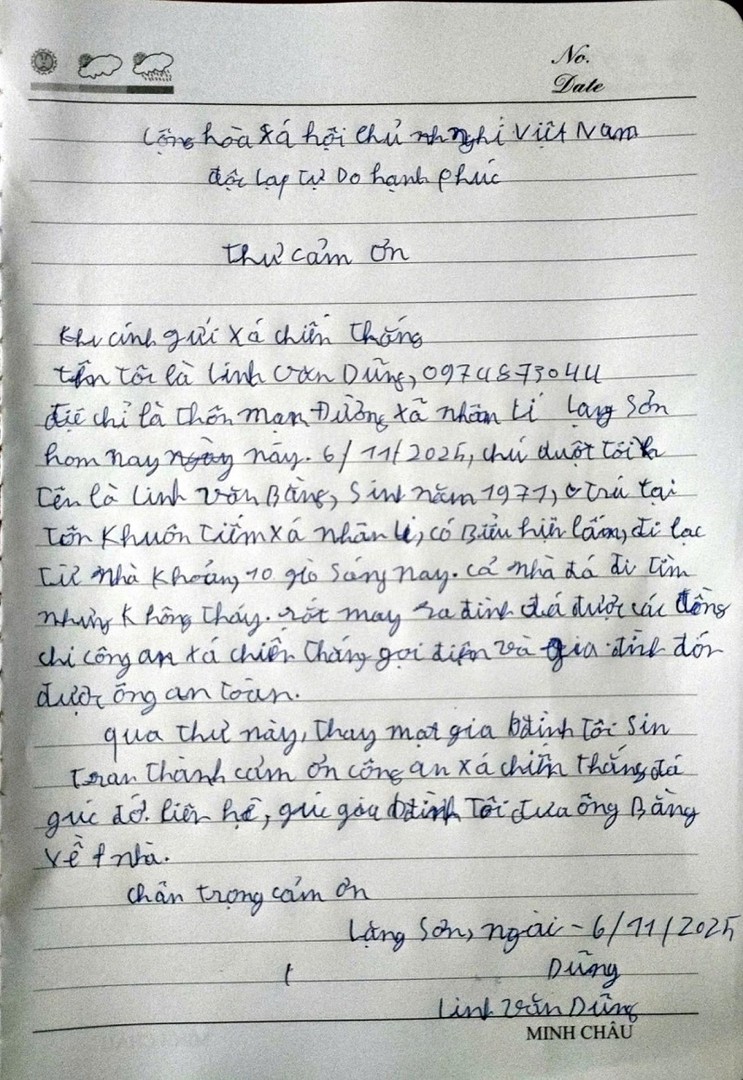 No.
Date
Cộng hòa xá hội chủ nghĩ Việt Nam
độc lạp tự Do hạnh phúc
thư cảm ơn
kính gửi xá chiến thắng
tên tôi là Linh Văn Dũng, 0974873044
địc chỉ là thôn mạn Đường xã nhân lí lạng Sơn
hom nay ngày này. 6/11/2025, chú duột tôi
tên là Linh Văn Bằng, Sinh năm 1971, trú tại
tôn Khuôn Tiềm xá nhân lí, có Biểu hiện lẩm, đi lạc
từ nhà khoảng 10 giò sáng nay. cả nhà đá đi tìm
nhưng không tháy. rất may ra đình đá được các đồng
chi công an xá chiến thắng gọi điện và gia đình đón
được ông an toàn.
qua thư này, thay mạt gia đình tôi sin
tran thành cảm ơn công an xá chiến thắng đá
gúc đở. liên hệ, gúc gia đình tôi đưa ông Bằng
về nhà.
chân trọng cảm ơn
Lạng Sơn, ngài - 6/11/2025
Dũng
Linh Văn Dũng
MINH CHÂU